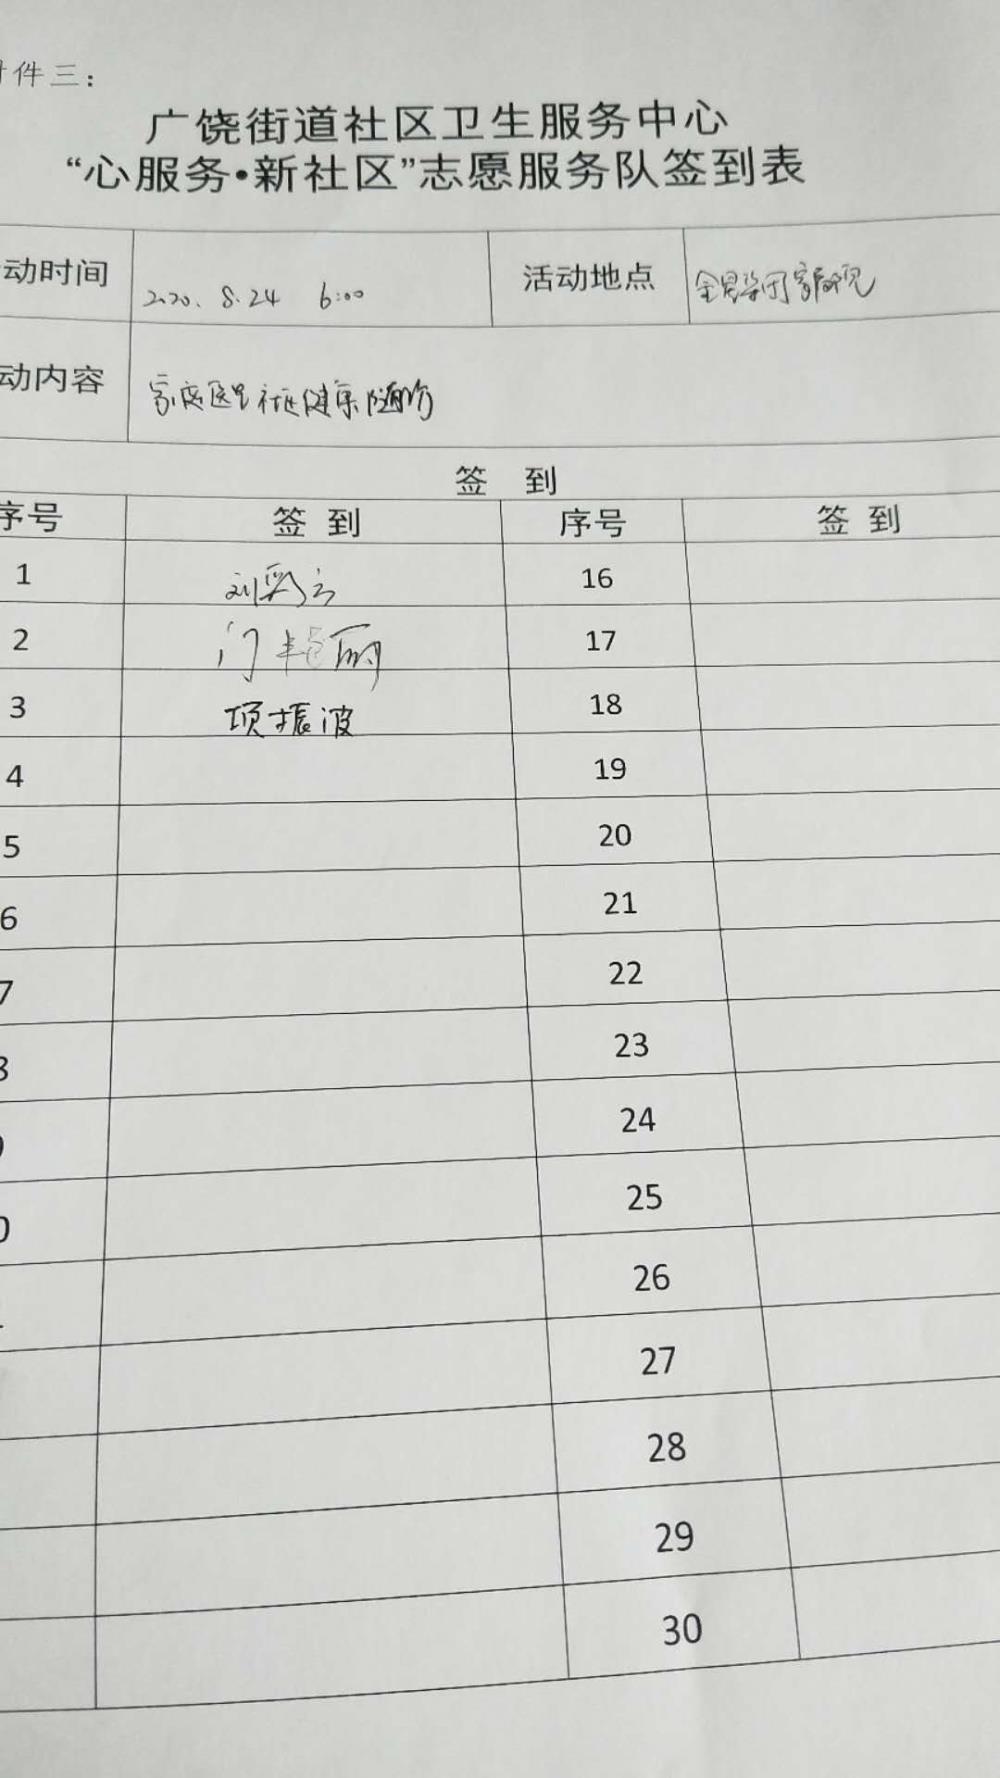 件三：
广饶街道社区卫生服务中心
“心服务•新社区”志愿服务队签到表
动时间 2020.8.24 6:00 活动地点 家属院
动内容 家庭医生社区健康随访
签 到
序号 签到 序号 签到
1 刘 云 16
2 门艳丽 17
3 项振波 18
4 19
5 20
6 21
7 22
8 23
24
0 25
26
27
28
29
30